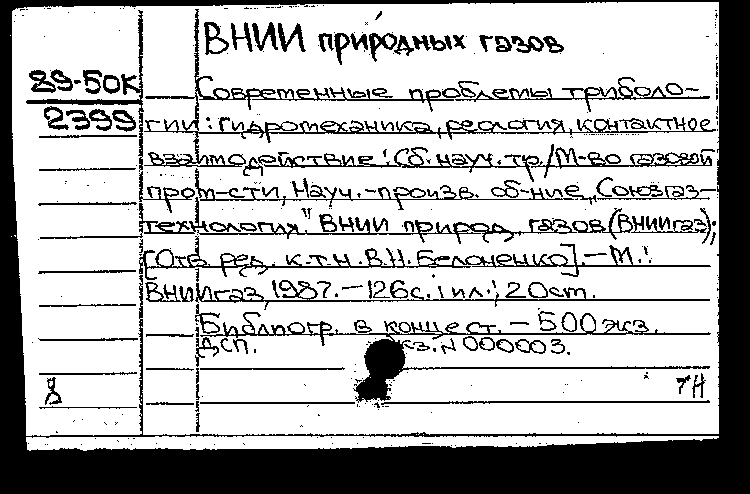 ВНИИ природных газов
89-50К
Современные проблемы триболо-
2399
гии: гидромеханика, реология, контактное
взаимодействие: Сб. науч. тр./М-во газовой
пром-сти, Науч.-произв. об-ние „Союзгаз-
технология" ВНИИ природ. газов (ВНИИгаз);
[Отв. ред. к.т.н. В.Н. Белоненко]. — М.:
ВНИИгаз, 1987. — 126с.: ил.; 20см.
Библиогр. в конце ст. — 500 экз.
ДСП. кз. N 000003.